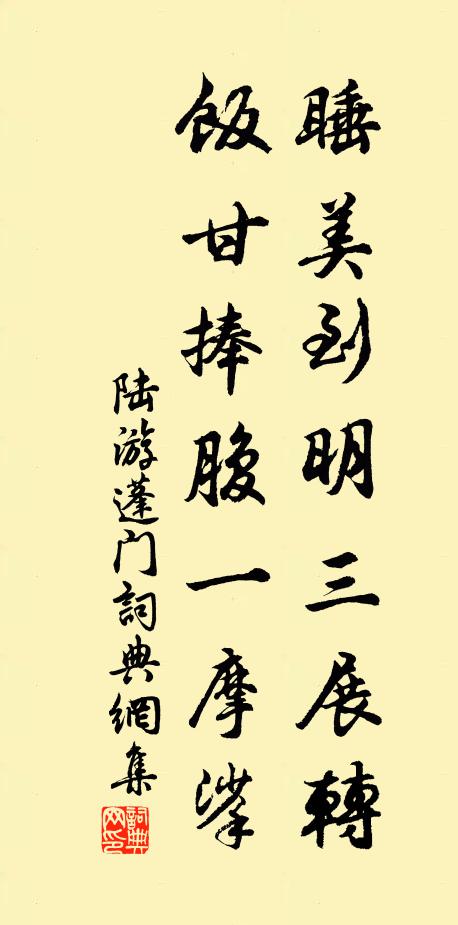 睡美到明三展轉
飯甘捧腹一摩挲
陆游蓬门詞典網集
詞典网印